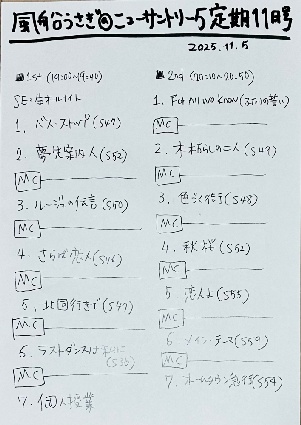 風船うさぎ@ニューサントリー5定期11月号
2025.11.5
1st (19:00~19:40)
SE:
1. バス・ストップ (S47)
2. 夢先案内人 (S52)
MC
3. ルージュの伝言 (S50)
MC
4. さらば恋人 (S46)
MC
5. 北国行きで (S47)
MC
6. ラストダンスは私に (S36)
MC
7. 個人授業
2nd (20:10~20:50)
1. Futari wo Know (ふたりの誓い)
MC
2. 木枯しの二人 (S49)
MC
3. 色づく街 (S48)
MC
4. 秋桜 (S52)
MC
5. 恋人よ (S55)
MC
6. メイン・テーマ (S50)
MC
7. ホームタウン急行 (S54)